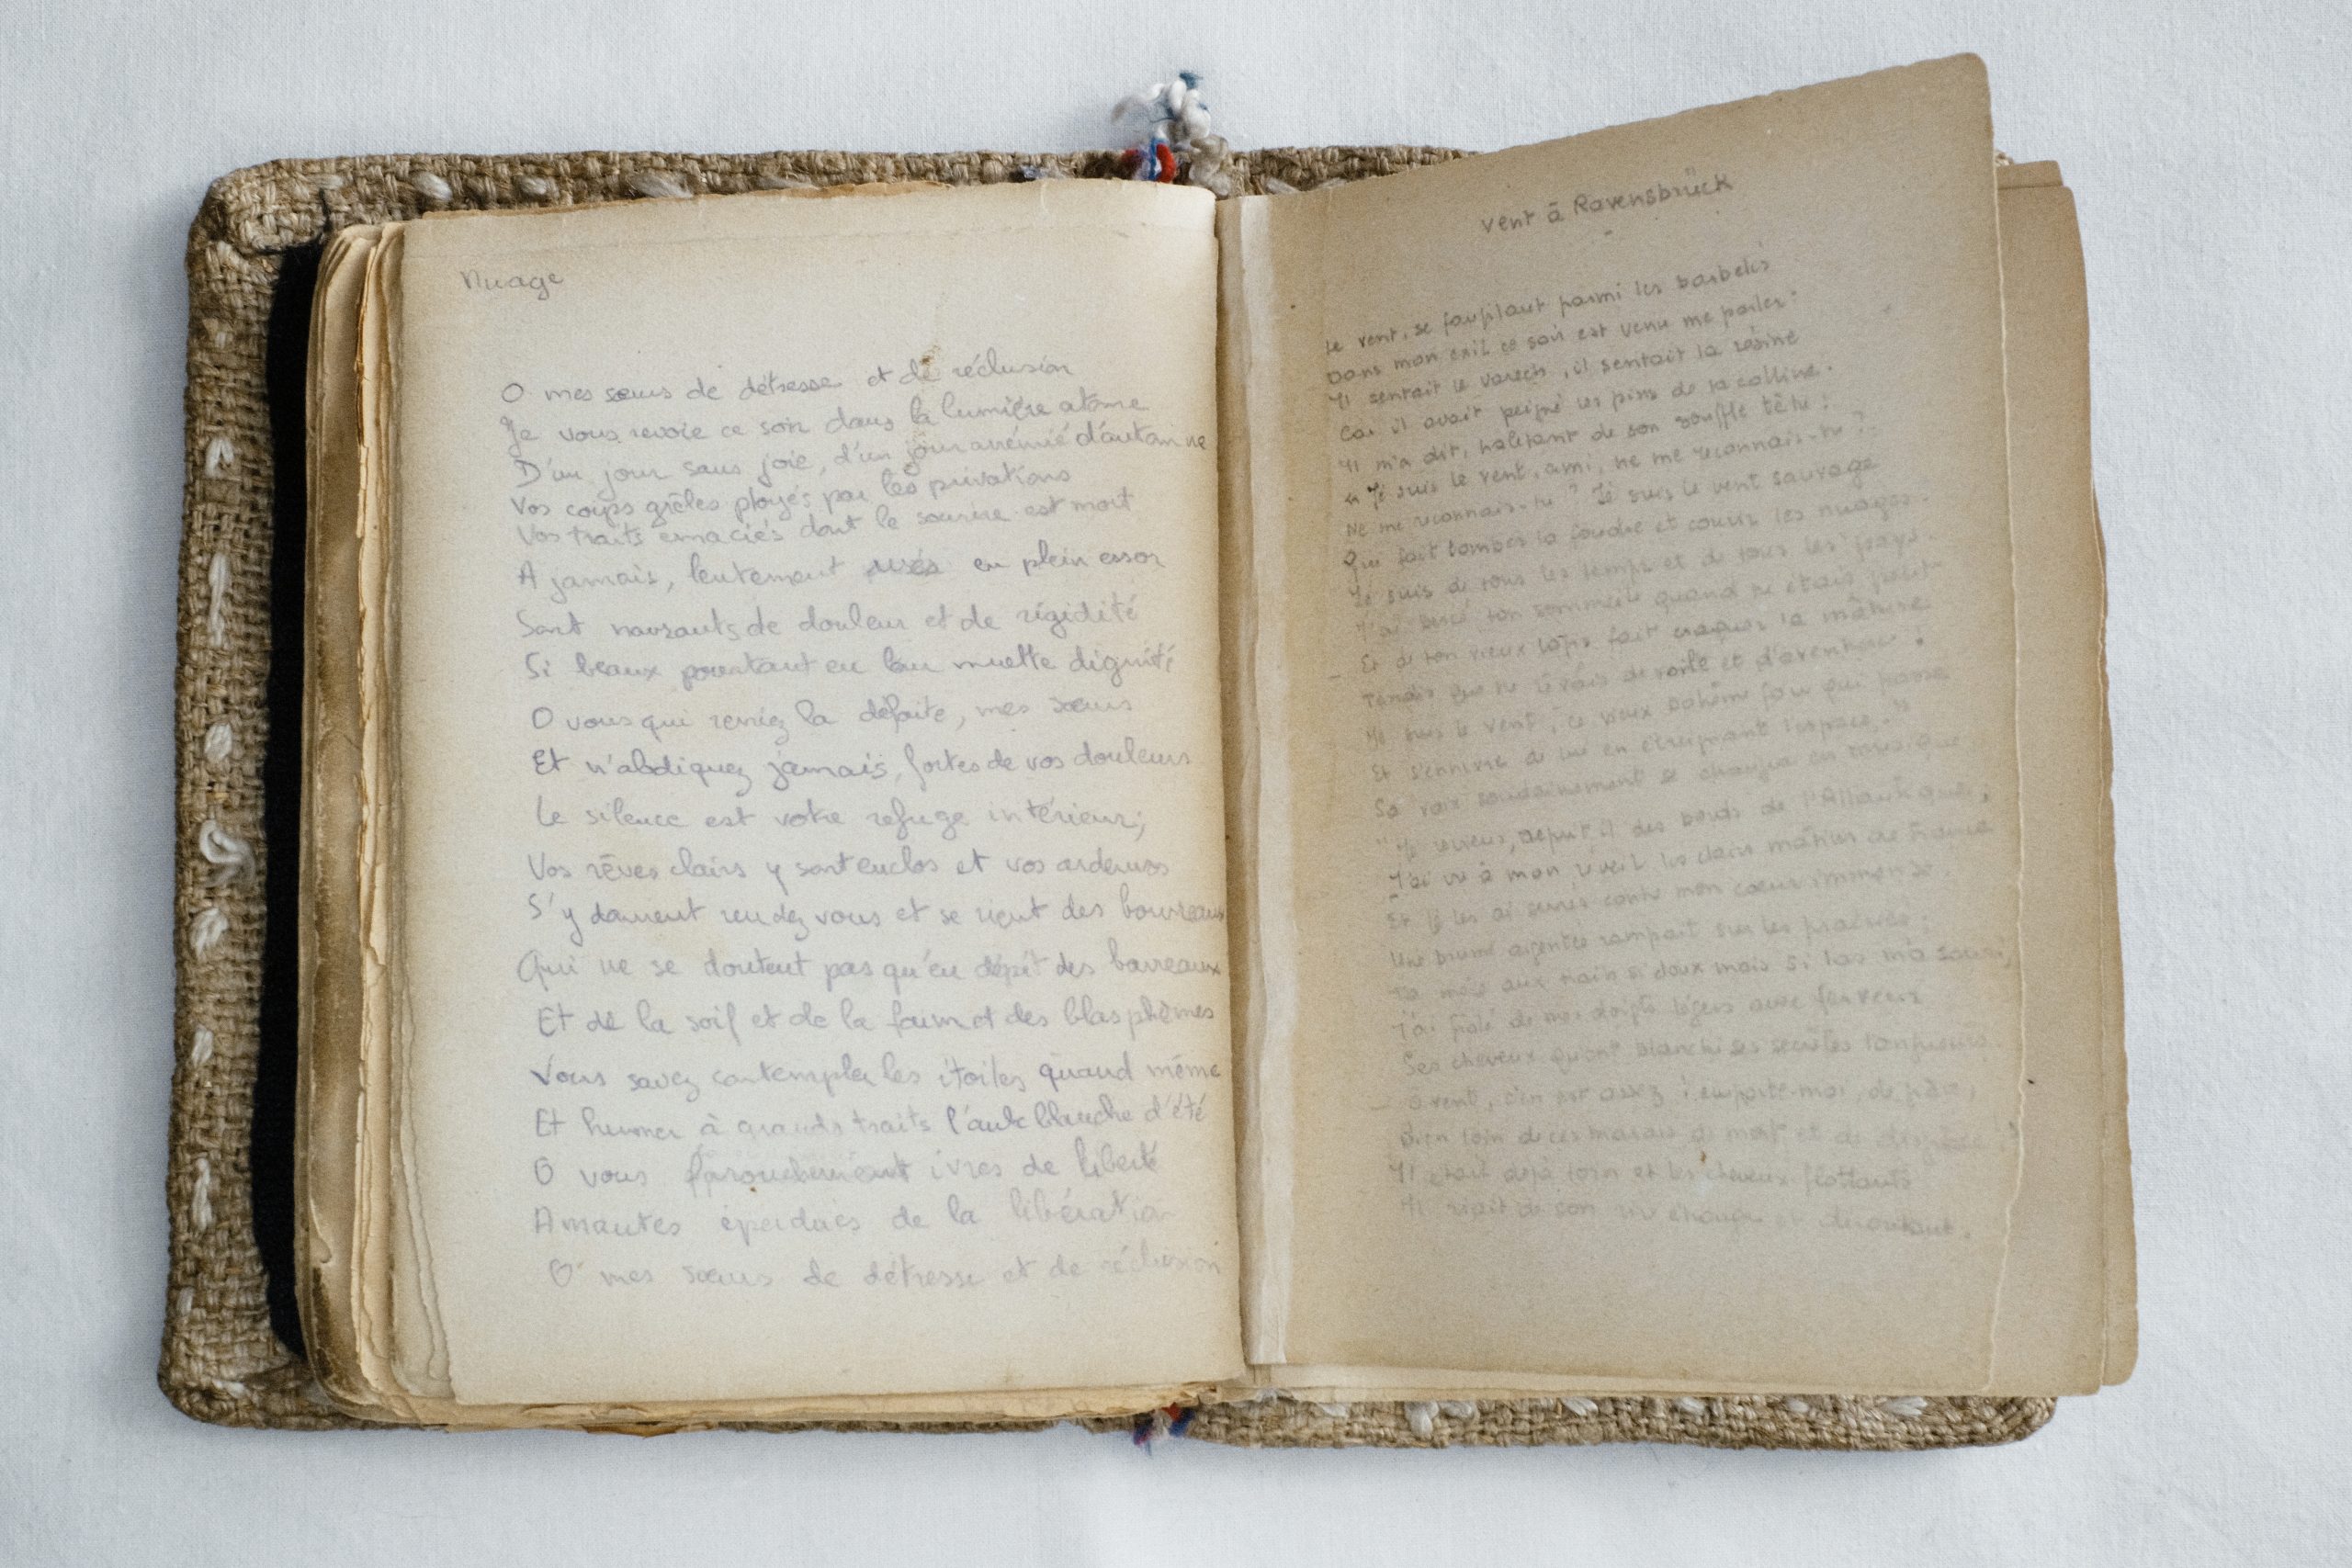 Nuage
O mes sœurs de détresse et de réclusion
Je vous revoie ce soir dans la lumière atone
D'un jour sans joie, d'un jour anémié d'automne
Vos corps grêles ployés par les privations
Vos traits émaciés dont le sourire est mort
A jamais, lentement usés en plein essor
Sont navrants de douleur et de rigidité
Si beaux pourtant en leur muette dignité
O vous qui reniez la défaite, mes sœurs
Et n'abdiquez jamais, fortes de vos douleurs
Le silence est votre refuge intérieur;
Vos rêves clairs y sont enclos et vos ardeurs
S'y donnent rendez vous et se rient des bourreaux
Qui ne se doutent pas qu'en dépit des barreaux
Et de la soif et de la faim et des blasphèmes
Vous savez contempler les étoiles quand même
Et humer à grands traits l'aube blanche d'été
O vous farouchement ivres de liberté
Amantes éperdues de la libération
O mes sœurs de détresse et de réclusion
Vent à Ravensbrück
Le vent, se faufilant parmi les barbelés
Dans mon exil ce soir est venu me parler:
Il sentait le varech, il sentait la résine
Car il avait peigné les pins de la colline.
Il m'a dit, haletant de son souffle têtu:
"Je suis le vent, ami, ne me reconnais-tu?
Ne me reconnais-tu? Je suis le vent sauvage
Qui fait tomber la foudre et courir les nuages.
Je suis de tous les temps et de tous les pays.
J'ai bercé ton sommeil quand tu étais petit
Et de ton vieux logis fait craquer la mâture
Tandis que tu rêvais de voile et d'aventure:
Je suis le vent, ce vieux bohème fou qui passe
Et s'enivre de lui en étreignant l'espace."
Sa voix soudainement se changea en musique
"Je reviens, reprit-il des bords de l'Atlantique;
J'ai vu à mon réveil les clairs matins de France
Et je les ai serrés contre mon cœur immense.
Une brume argentée rampait sur les prairies;
Ta mère aux mains si doux mais si las m'a souri,
J'ai frôlé de mes doigts légers avec ferveur
Ses cheveux qu'ont blanchi ses secrètes langueurs.
- O vent, c'en est assez! emporte-moi, de grâce,
Bien loin de ces marais de mort et de
Il était déjà loin et les cheveux flottants
Il riait de son rire étrange et déroutant.